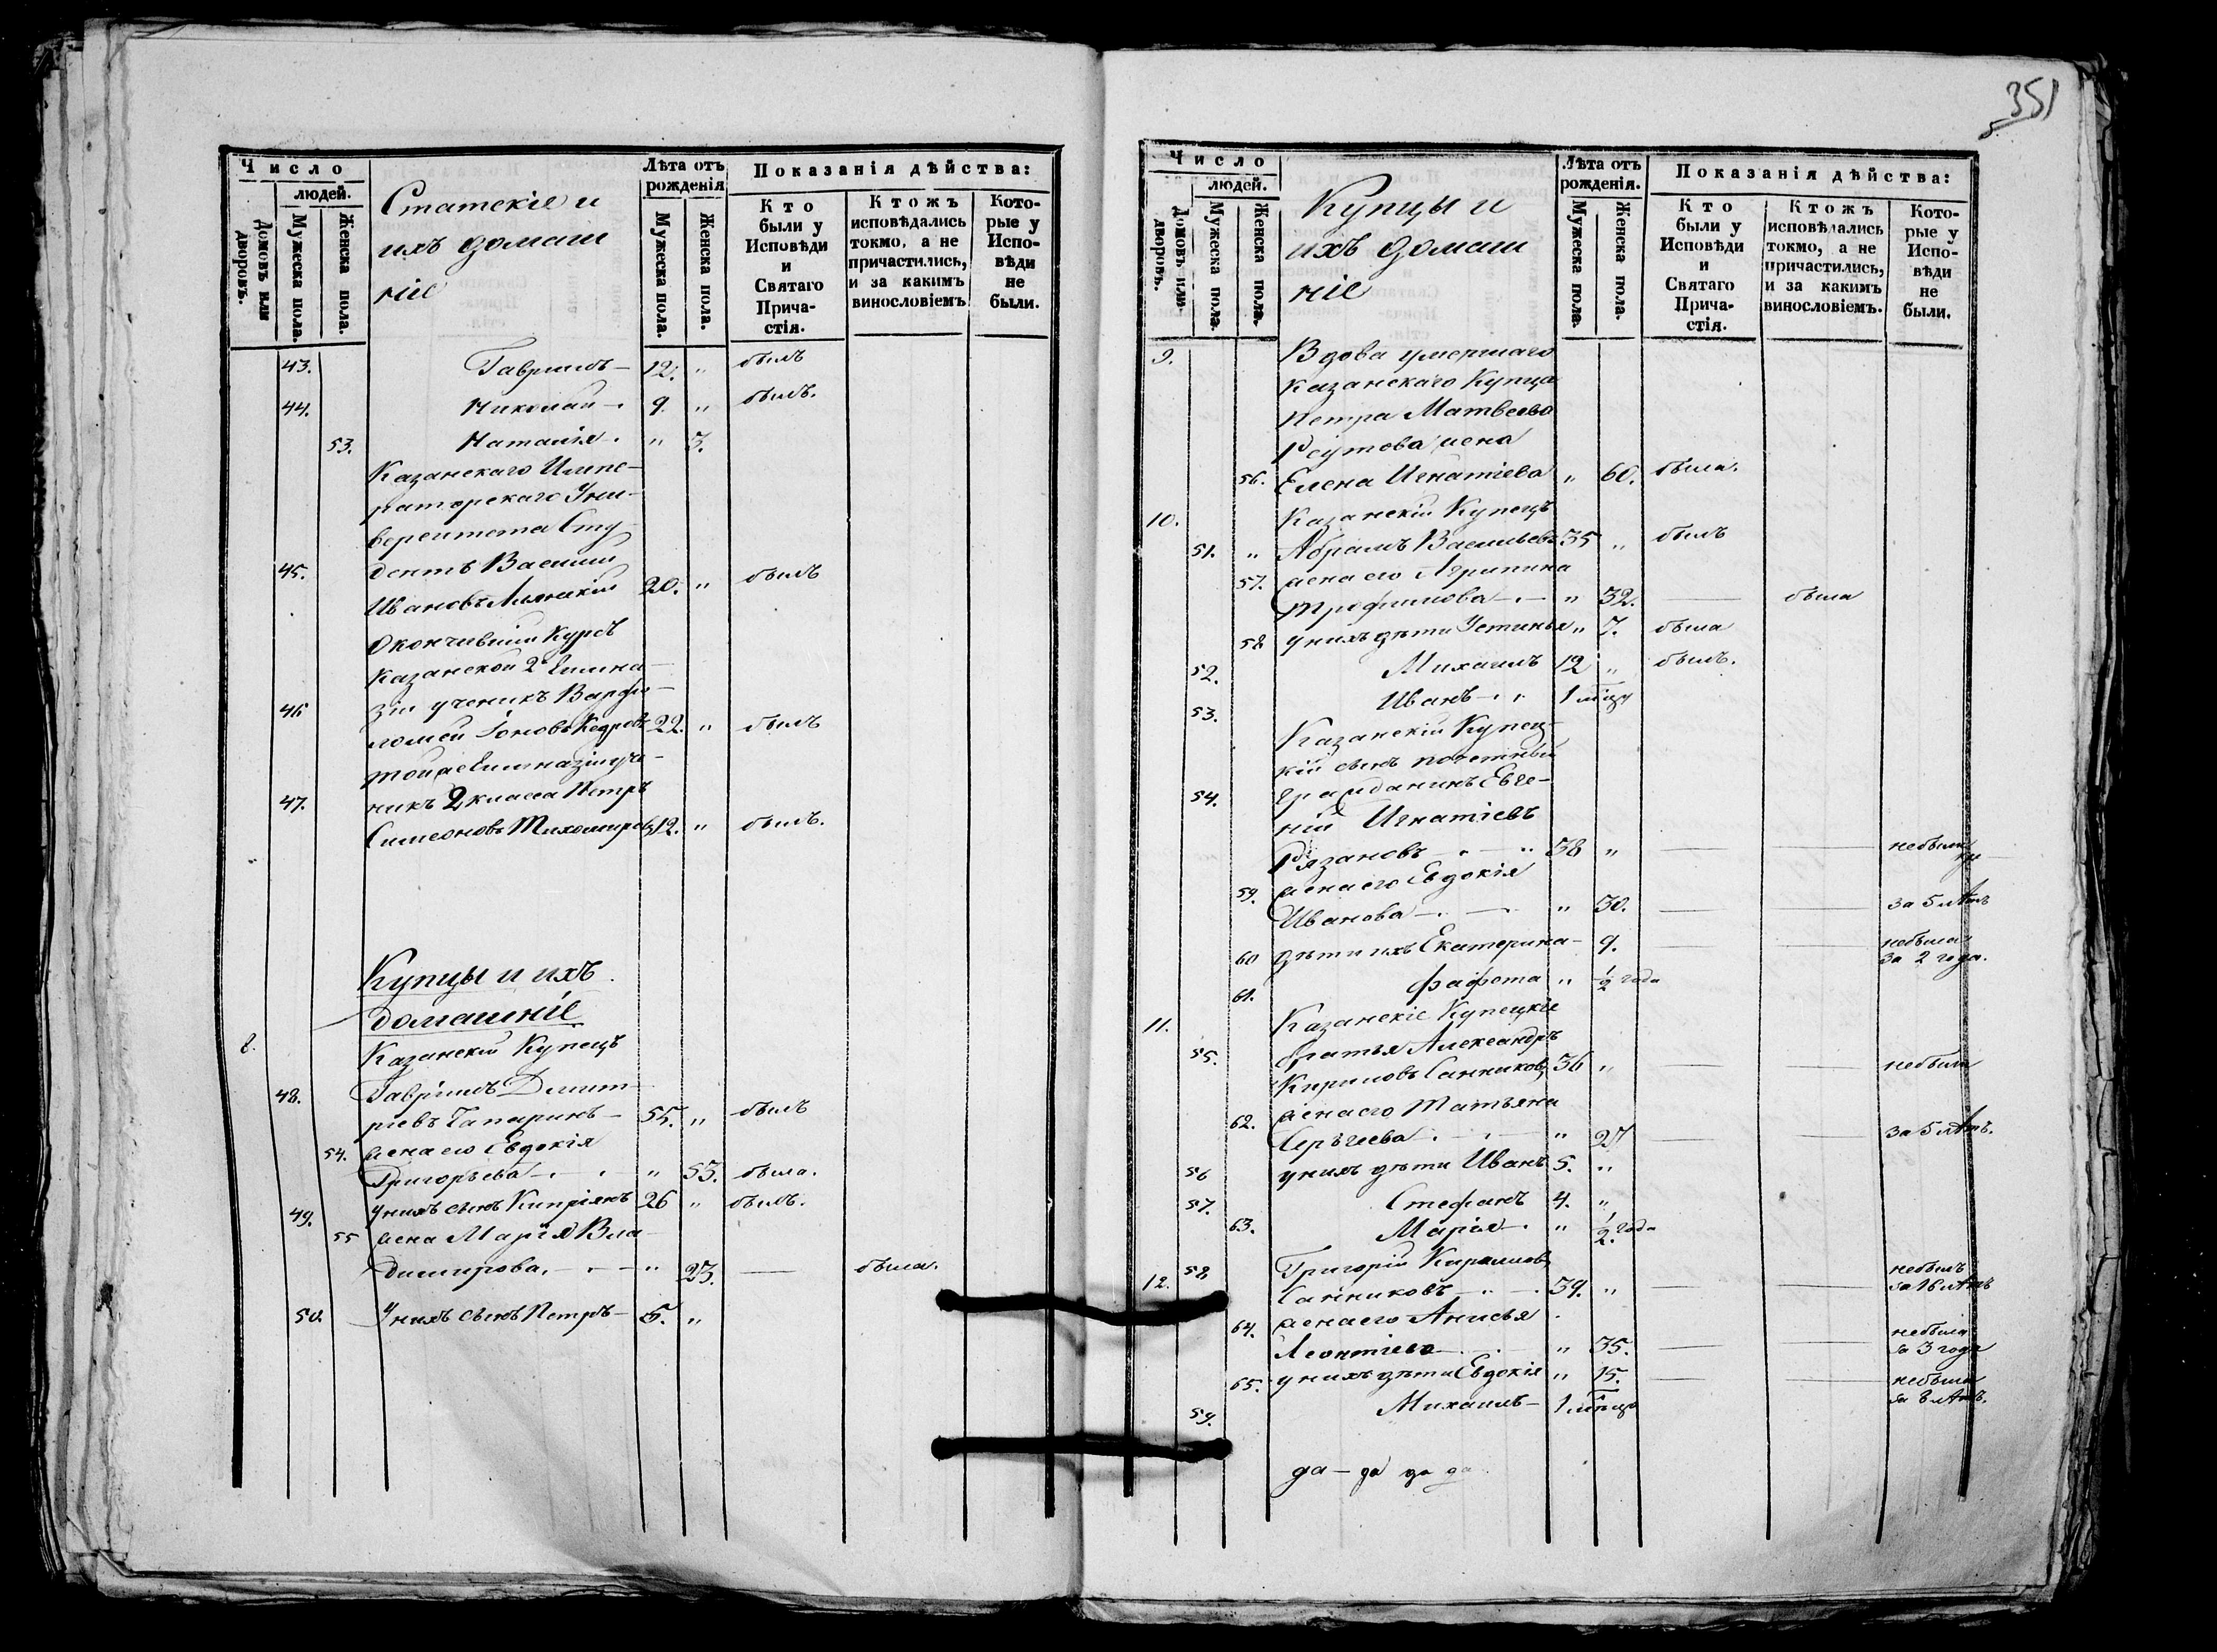 351
Число
людей.
Домовъ или дворовъ.
Мужеска пола.
Женска пола.
Статскіе и
ихъ домаш
ніе
Лѣта отъ рожденія
Мужеска пола.
Женска пола.
Показанія дѣйства:
Кто были у Исповѣди и Святаго Причастія.
Ктожъ исповѣдались токмо, а не причастились, и за какимъ винословіемъ
Которые у Исповѣди не были.
43. Гавріилъ — 12. " былъ
44. Николай — 9. " былъ.
53. Наталія — " 3.
Казанскаго Импе-
раторскаго Уни-
верситета Сту-
45. дентъ Василий
Ивановъ 20. " былъ
Окончившій Курсъ
Казанской 2й Гимна-
46 зіи ученикъ Варфо-
ломей Іоновъ Кедровъ 22. " былъ
тойже Гимназіи уче-
47. никъ 2 класса Петръ
Симеоновъ Тихомировъ 12. " былъ.
Купцы и ихъ
домашніе
8. Казанскій Купецъ
48. Гавріилъ Димит-
ріевъ 55. " былъ
54. жена его Евдокія
Григорьева — " 53. была.
49. у нихъ сынъ Кипріянъ 26 " былъ.
55 жена Марія Вла-
димирова. — " 23. — была.
50. У нихъ сынъ Петръ — 5. "
Число
людей.
Домовъ или дворовъ.
Мужеска пола.
Женска пола.
Купцы и
ихъ домаш
ніе
Лѣта отъ рожденія.
Мужеска пола.
Женска пола.
Показанія дѣйства:
Кто были у Исповѣди и Святаго Причастія.
Ктожъ исповѣдались токмо, а не причастились, и за какимъ винословіемъ.
Которые у Исповѣди не были.
9. Вдова умершаго
Казанскаго Купца
Петра Матвеева
Реутова жена
56. Елена Игнатіева " 60. была.
10. Казанскій Купецъ
51. " Абрамъ Васильевъ 35 " былъ
57. жена его Агрипина
Трофимова — " 32. — была
58 у нихъ дѣти Устинья " 7. была
52. Михаилъ 12 " былъ.
53. Иванъ 1 мѣца
Казанскій Купец-
кій сынъ почетный
54. гражданинъ Евге-
ній Игнатіевъ
Рязановъ — 38 " — — небыли
59. жена его Евдокія
Иванова — " 30. — — за 5 лѣтъ
60 дѣти ихъ Екатерина — 9. — — небыла за 2 года.
61. " ½ года
11. Казанскіе Купецкіе
55. братья Александръ
Кириловъ Санниковъ 36 " — — небыли
62. жена его Татьяна
Сергѣева — " 27 — — за 5 лѣтъ.
56 у нихъ дѣти Иванъ 5. "
57. Стефанъ 4. "
63. Марія — " ½ года
12. 58 Григорій Кириловъ
Санниковъ — 39. " — — небылъ за 16 лѣтъ
64. жена его Анисья
Леонтіева — " 35. — — небыла за 3 года
65. у нихъ дѣти Евдокія " 15. — — небыла за 8 лѣтъ.
59. Михаилъ — 1 мѣца
да — да да да